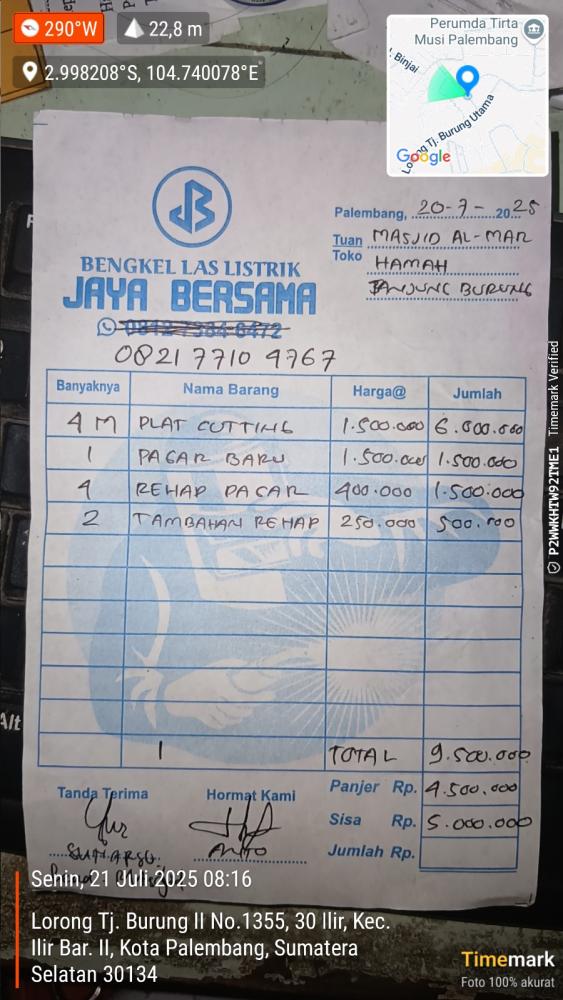 290°W 22,8 m
2.998208°S, 104.740078°E
Perumda Tirta
Musi Palembang
Binjai
Lorong Tj. Burung Utama
Google
JB
BENGKEL LAS LISTRIK
JAYA BERSAMA
0821 7710 4767
Palembang, 20-7-2025
Tuan MASJID AL-MAR
Toko HAMAH
TANJUNG BURUNG
Banyaknya Nama Barang Harga@ Jumlah
4 M PLAT CUTTING 1.500.000 6.000.000
1 PAGAR BARU 1.500.000 1.500.000
4 REHAP PAGAR 400.000 1.500.000
2 TAMBAHAN REHAP 250.000 500.000
1 TOTAL 9.500.000
Panjer Rp. 4.500.000
Sisa Rp. 5.000.000
Jumlah Rp.
Tanda Terima Hormat Kami
SUHARSO ANTO
Senin, 21 Juli 2025 08:16
Lorong Tj. Burung II No.1355, 30 Ilir, Kec.
Ilir Bar. II, Kota Palembang, Sumatera
Selatan 30134
Timemark
Foto 100% akurat
P2WWKHTW92TME1 Timemark Verified
Alt